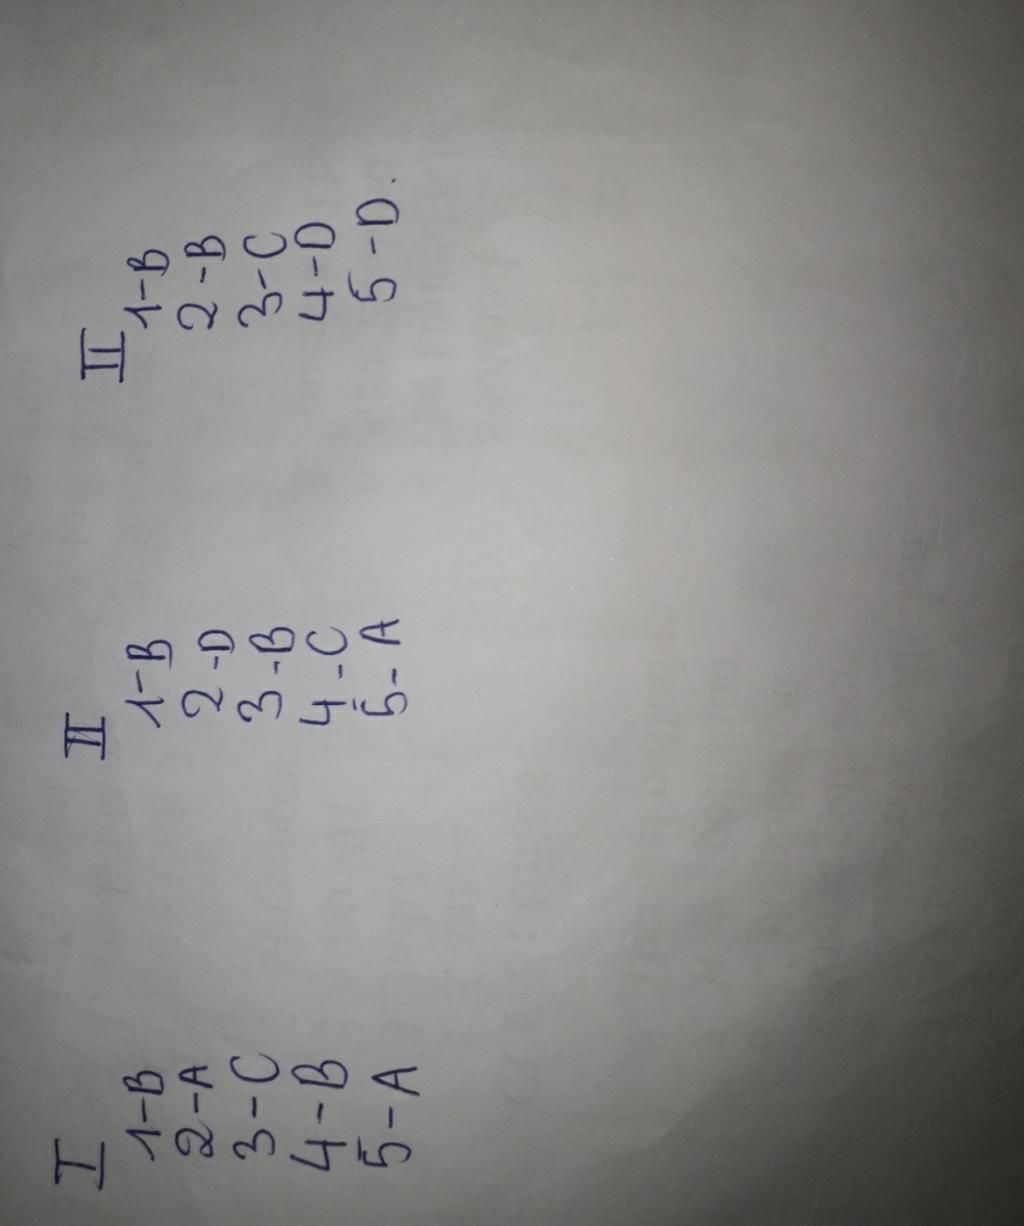 I
1-B
2-A
3-C
4-B
5-A
II
1-B
2-D
3-B
4-C
5-A
II
1-B
2-B
3-C
4-D
5-D.